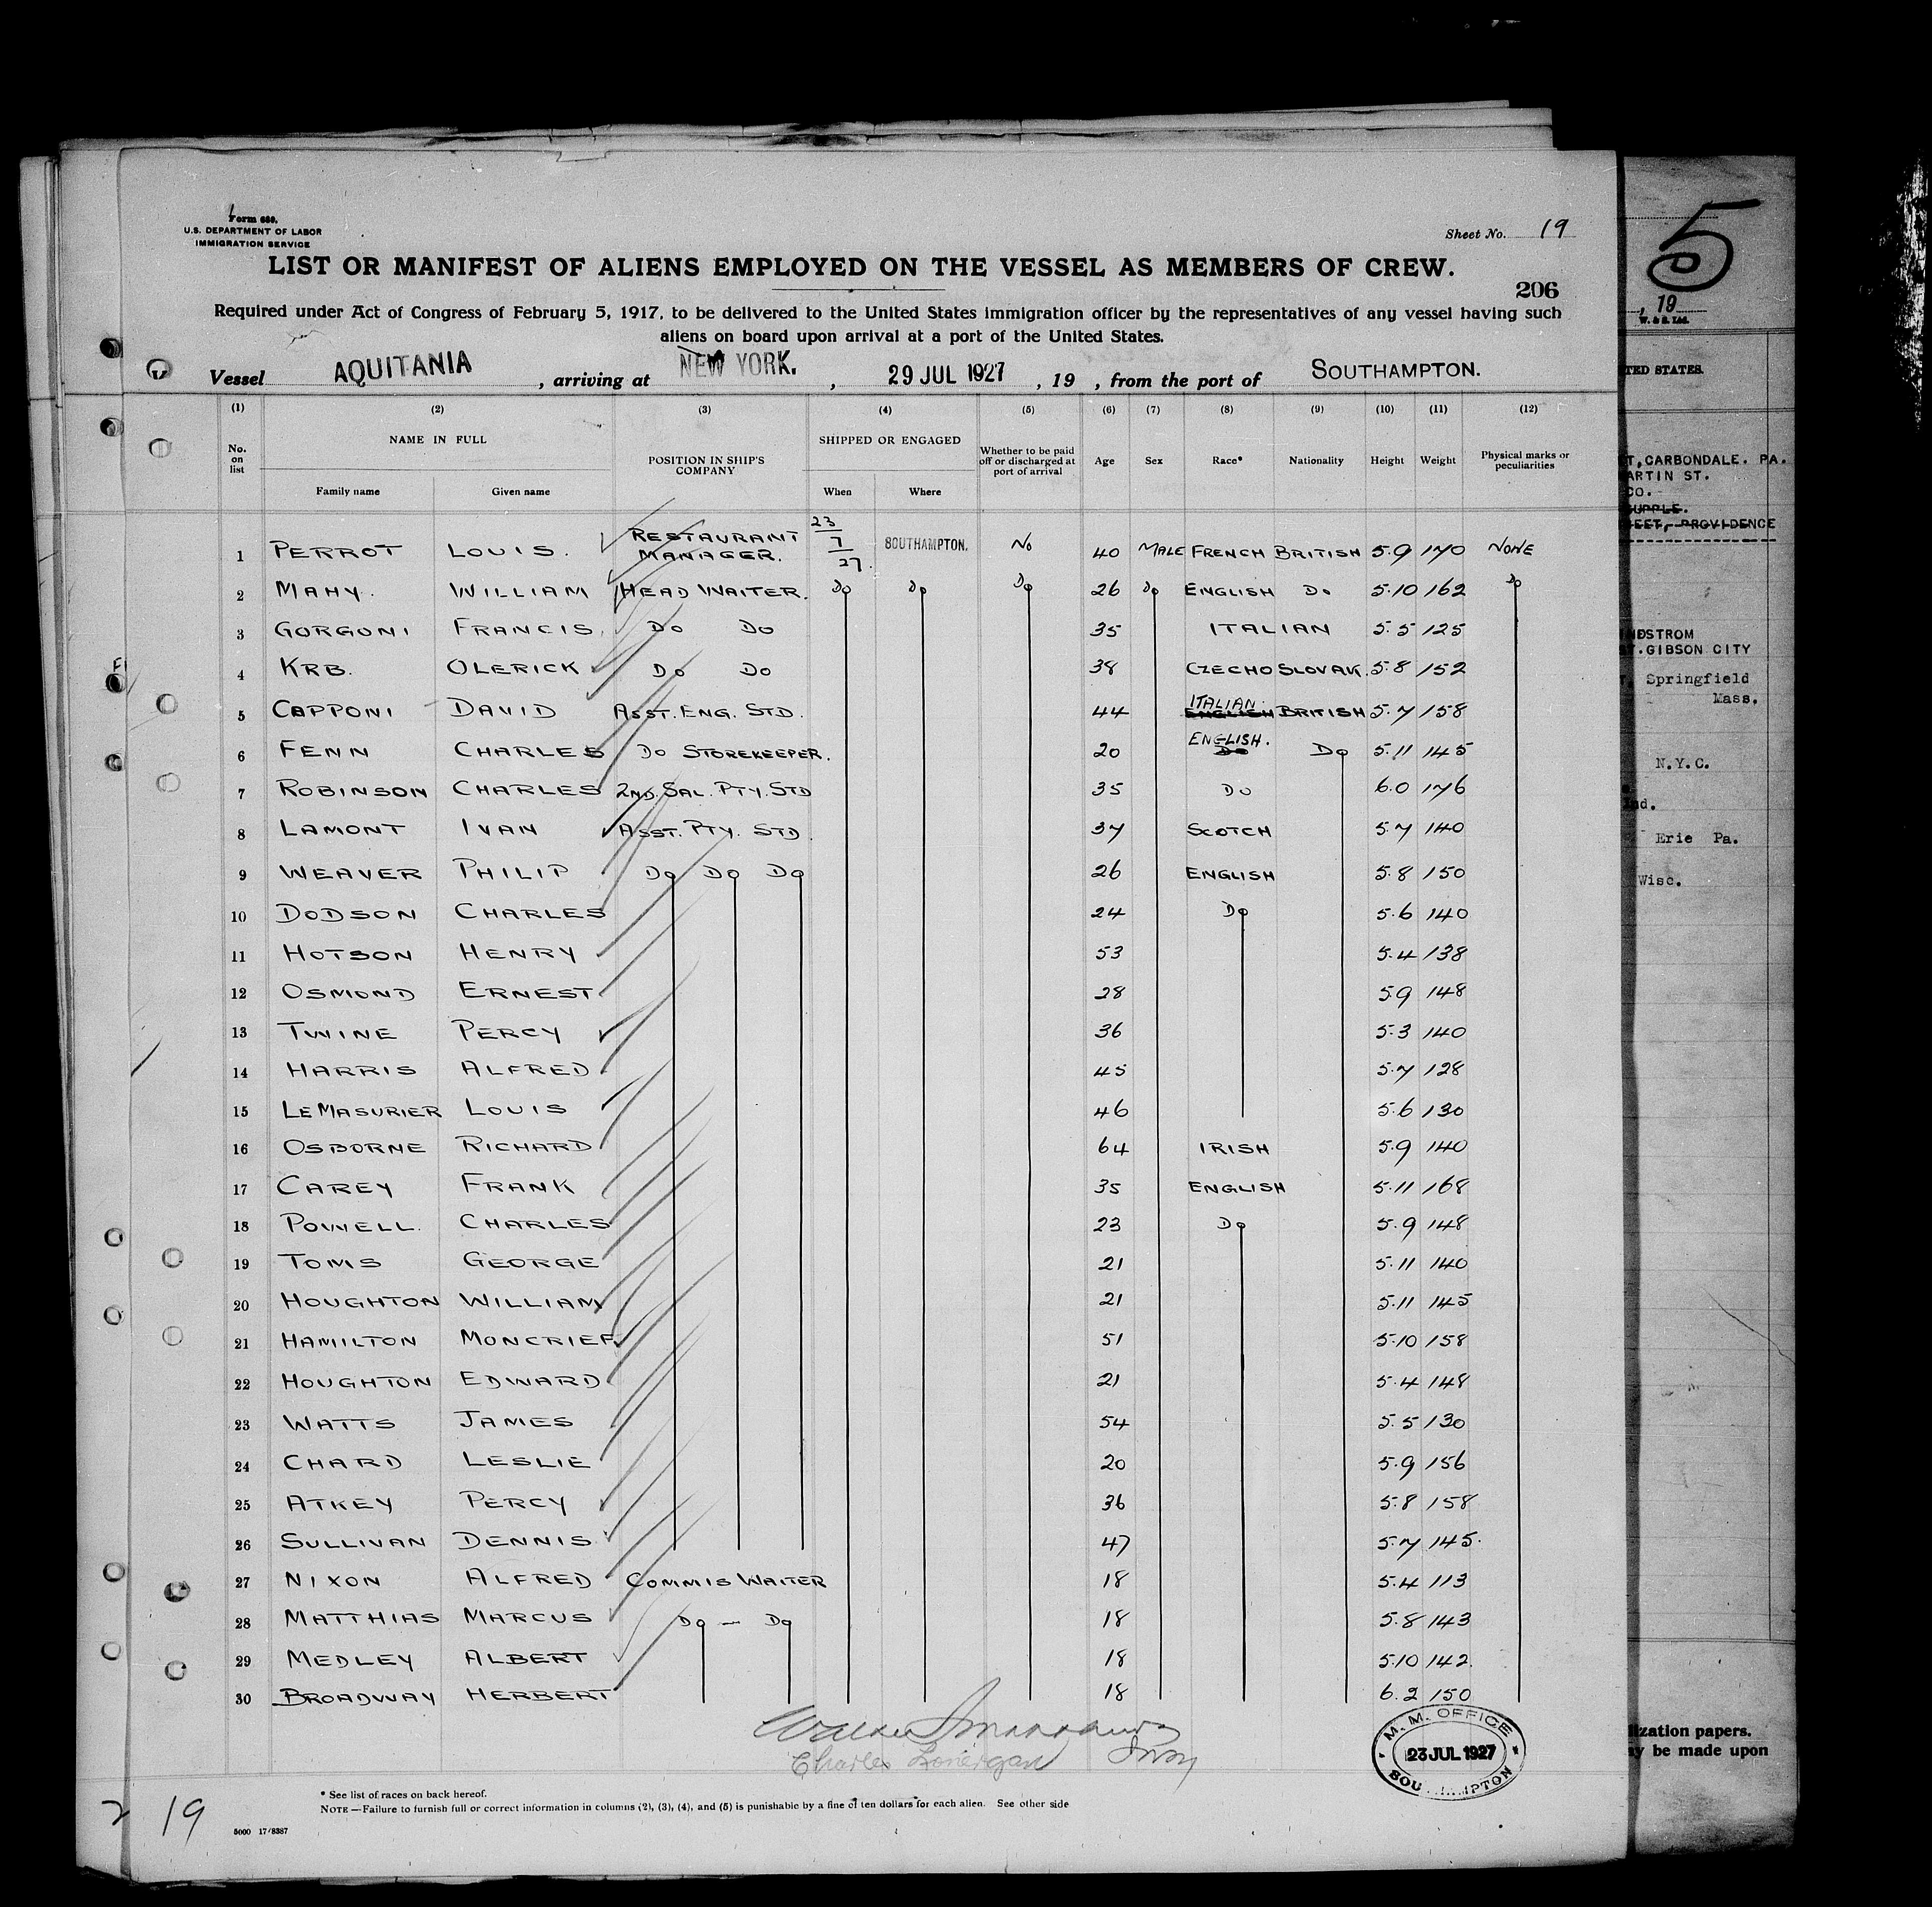 Form 680.
U.S. DEPARTMENT OF LABOR
IMMIGRATION SERVICE
Sheet No. 19
LIST OR MANIFEST OF ALIENS EMPLOYED ON THE VESSEL AS MEMBERS OF CREW.
206
Required under Act of Congress of February 5, 1917, to be delivered to the United States immigration officer by the representatives of any vessel having such
aliens on board upon arrival at a port of the United States.
Vessel AQUITANIA, arriving at NEW YORK., 29 JUL 1927, 19 , from the port of SOUTHAMPTON.
(1) (2) (3) (4) (5) (6) (7) (8) (9) (10) (11) (12)
No. on list NAME IN FULL POSITION IN SHIP'S COMPANY SHIPPED OR ENGAGED Whether to be paid off or discharged at port of arrival Age Sex Race* Nationality Height Weight Physical marks or peculiarities
Family name Given name When Where
1 PERROT LOUIS. RESTAURANT MANAGER. 23/7/27. SOUTHAMPTON. NO 40 MALE FRENCH BRITISH 5.9 170 NONE
2 MAHY. WILLIAM HEAD WAITER. DO DO DO 26 DO ENGLISH DO 5.10 162 DO
3 GORGONI FRANCIS. DO DO 35 ITALIAN 5.5 125
4 KRB. OLERICK DO DO 38 CZECHO SLOVAK. 5.8 152
5 CAPPONI DAVID ASST. ENG. STD. 44 ITALIAN. ENGLISH BRITISH 5.7 158
6 FENN CHARLES DO STOREKEEPER. 20 ENGLISH. DO DO 5.11 145
7 ROBINSON CHARLES 2ND. SAL. PTY. STD 35 DO 6.0 176
8 LAMONT IVAN ASST. PTY. STD. 37 SCOTCH 5.7 140
9 WEAVER PHILIP DO DO DO 26 ENGLISH 5.8 150
10 DODSON CHARLES 24 DO 5.6 140
11 HOTSON HENRY 53 5.4 138
12 OSMOND ERNEST 28 5.9 148
13 TWINE PERCY 36 5.3 140
14 HARRIS ALFRED 45 5.7 128
15 LEMASURIER LOUIS 46 5.6 130
16 OSBORNE RICHARD 64 IRISH 5.9 140
17 CAREY FRANK 35 ENGLISH 5.11 168
18 POWELL. CHARLES 23 DO 5.9 148
19 TOMS GEORGE 21 5.11 140
20 HOUGHTON WILLIAM 21 5.11 145
21 HAMILTON MONCRIEF 51 5.10 158
22 HOUGHTON EDWARD 21 5.4 148
23 WATTS JAMES 54 5.5 130
24 CHARD LESLIE 20 5.9 156
25 ATKEY PERCY 36 5.8 158
26 SULLIVAN DENNIS 47 5.7 145.
27 NIXON ALFRED COMMIS WAITER 18 5.4 113
28 MATTHIAS MARCUS DO — DO 18 5.8 143
29 MEDLEY ALBERT 18 5.10 142.
30 BROADWAY HERBERT 18 6.2 150
Charles Lonergan
M. M. OFFICE
23 JUL 1927
* See list of races on back hereof.
NOTE—Failure to furnish full or correct information in columns (2), (3), (4), and (5) is punishable by a fine of ten dollars for each alien. See other side
5000 17/8387
19
5
, 19
W. & S. Ltd.
TED STATES.
T, CARBONDALE. PA.
ARTIN ST.
CO.
SUPPLE.
EET, PROVIDENCE
NDSTROM
T. GIBSON CITY
Springfield
Mass.
N.Y.C.
Ind.
Erie Pa.
Wisc.
lization papers.
y be made upon